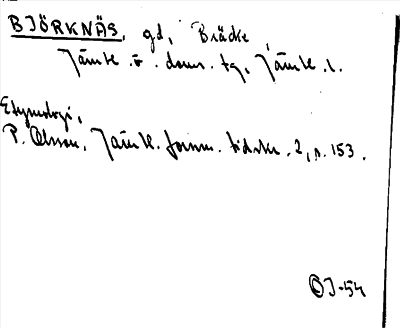 BJÖRKNÄS, gd, Bräcke
Jämtl. ö. doms. tg, Jämtl. l.
Etymologi,
P. Olsson, Jämtl. fornm. tidskr. 2, s. 153.
OJ-54